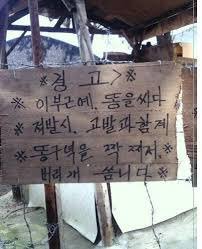 ※경고>※
※이부근에. 똥을싸다
※적발시. 고발과함께
※똥구멱을 꽉 쩌저.
버리개 씀니다.※